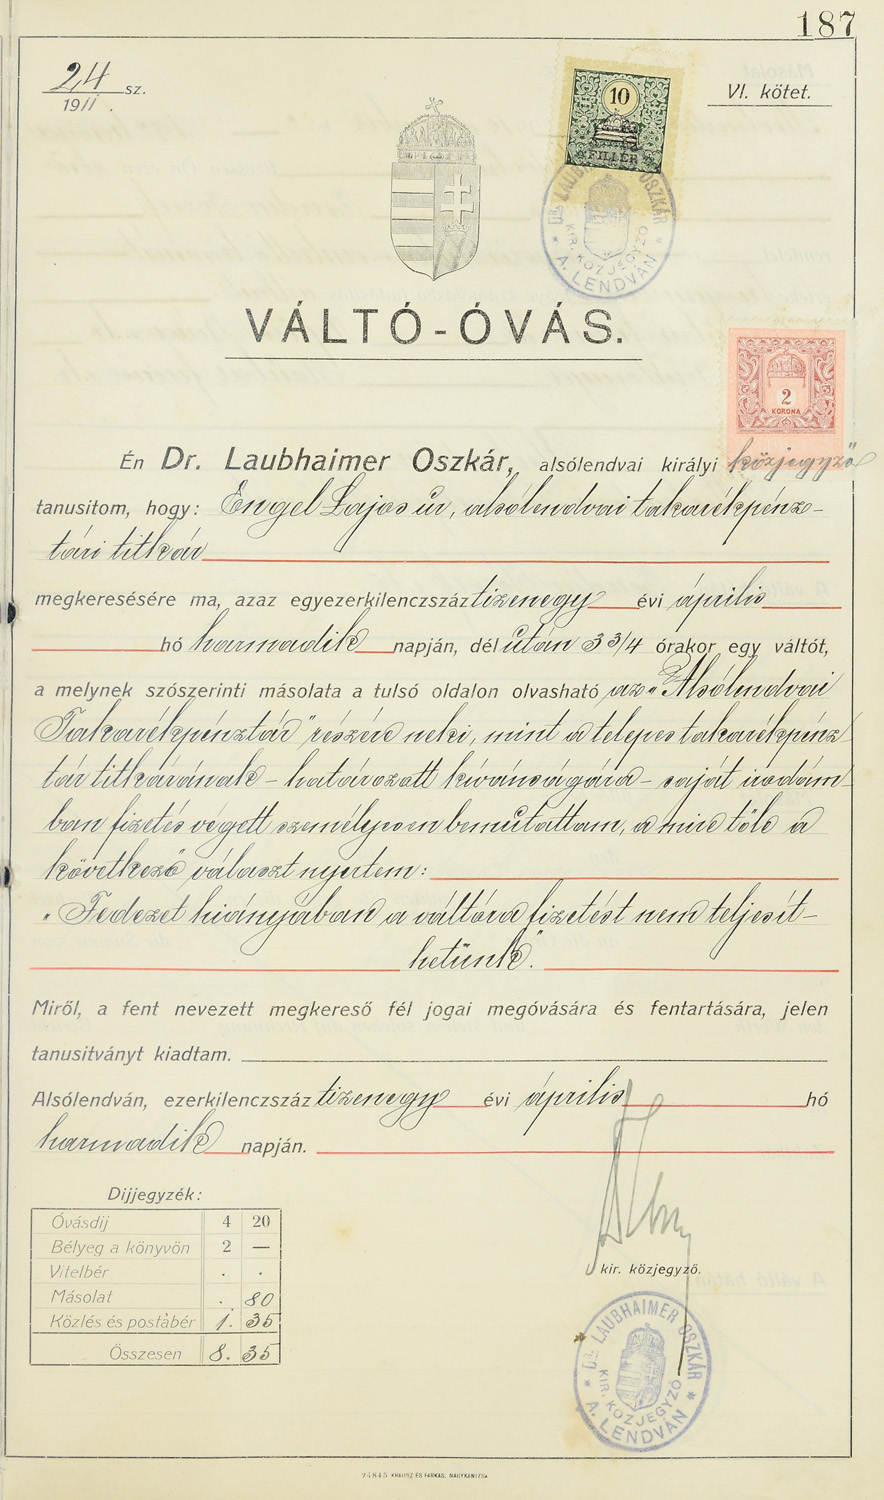 187
24 sz.
1911.
VI. kötet.
10
FILLÉR
DR. LAUBHAIMER OSZKÁR
KIR. KÖZJEGYZŐ
* A. LENDVÁN *
VÁLTÓ-ÓVÁS.
2
KORONA
Én Dr. Laubhaimer Oszkár, alsólendvai királyi közjegyző
tanusitom, hogy: Engel Lajos úr, alsólendvai takarékpénz-
tári titkár
megkeresésére ma, azaz egyezerkilenczszáz tizenegy évi április
hó harmadik napján, dél után 3 3/4 órakor egy váltót,
a melynek szószerinti másolata a tulsó oldalon olvasható az „Alsólendvai
Takarékpénztár" részére neki, mint a telepes takarékpénz
tár titkárának - határozott kívánságára - saját irodám-
ban fizetés végett személyesen bemutattam, a mire tőle a
következő választ nyertem:
„Fedezet hiányában a váltóra fizetést nem teljesít-
hetünk".
Miről, a fent nevezett megkereső fél jogai megóvására és fentartására, jelen
tanusitványt kiadtam.
Alsólendván, ezerkilenczszáz tizenegy évi április hó
harmadik napján.
Dijjegyzék:
Óvásdij 4 20
Bélyeg a könyvön 2 —
Vitelbér . .
Másolat . 80
Közlés és postabér 1. 35
Összesen 8. 35
kir. közjegyző.
DR. LAUBHAIMER OSZKÁR
KIR. KÖZJEGYZŐ
* A. LENDVÁN *
24845 KRAUSZ ÉS FARKAS, NAGYKANIZSA